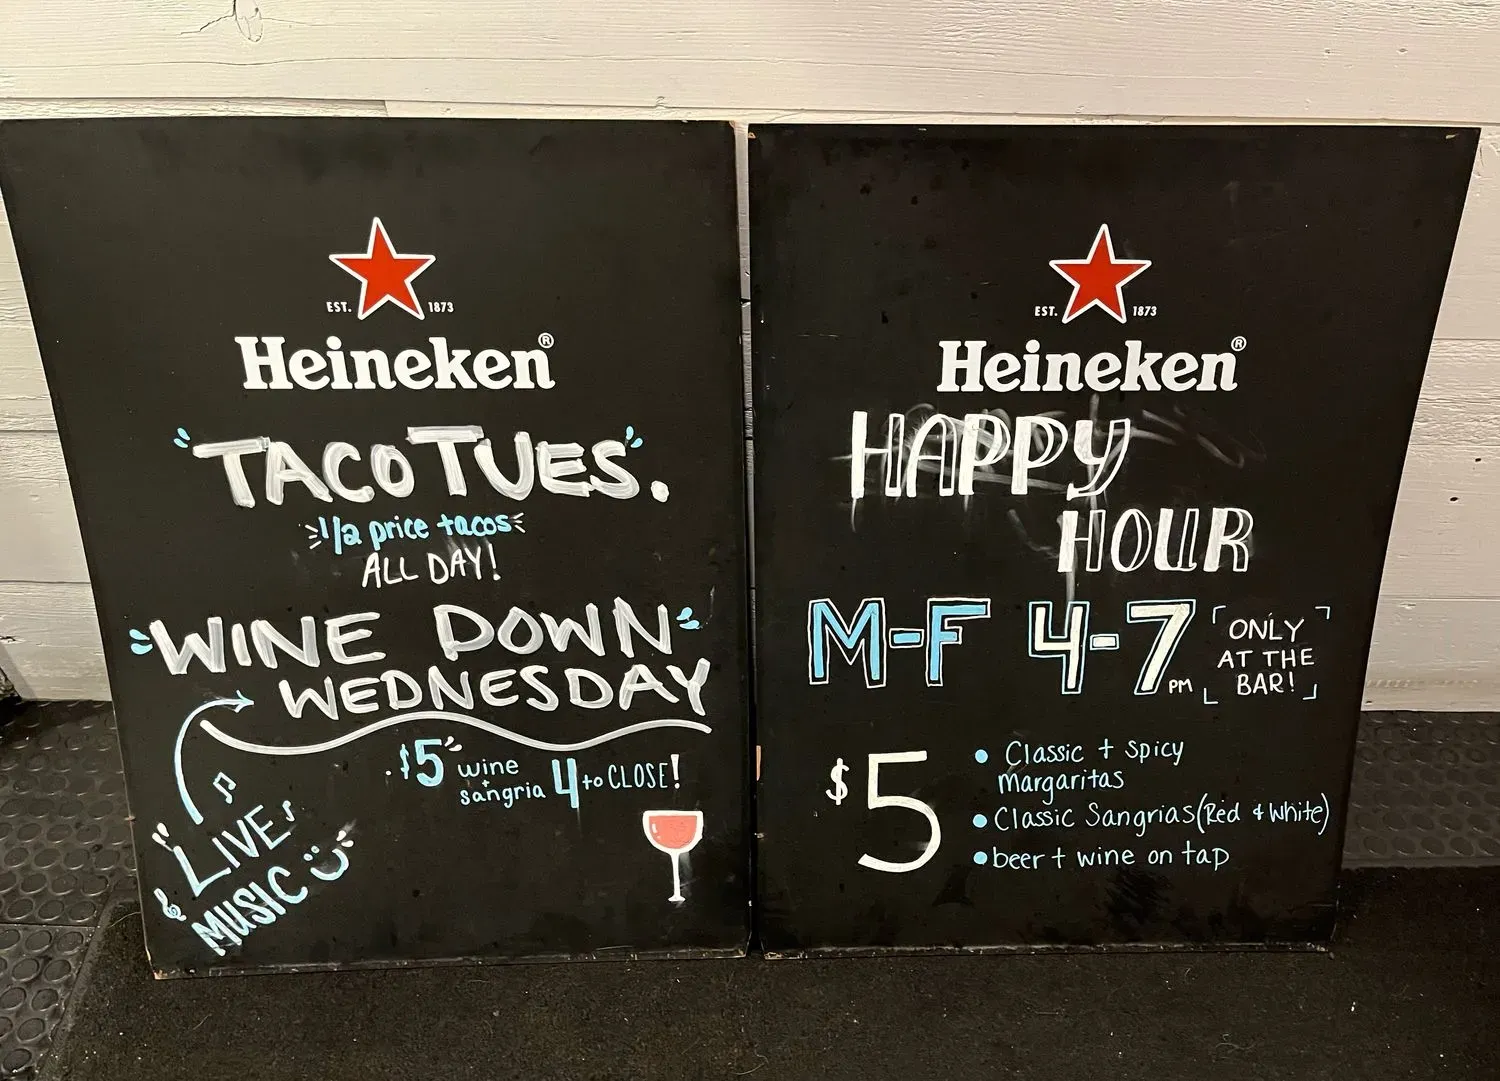 EST. 1873
Heineken®
TACO TUES.
1/2 price tacos
ALL DAY!
WINE DOWN
WEDNESDAY
$5 wine + sangria 4 to CLOSE!
LIVE
MUSIC
EST. 1873
Heineken®
HAPPY
HOUR
M-F 4-7PM
ONLY
AT THE
BAR!
$5
• Classic + Spicy
margaritas
• Classic Sangrias (Red & White)
• beer + wine on tap